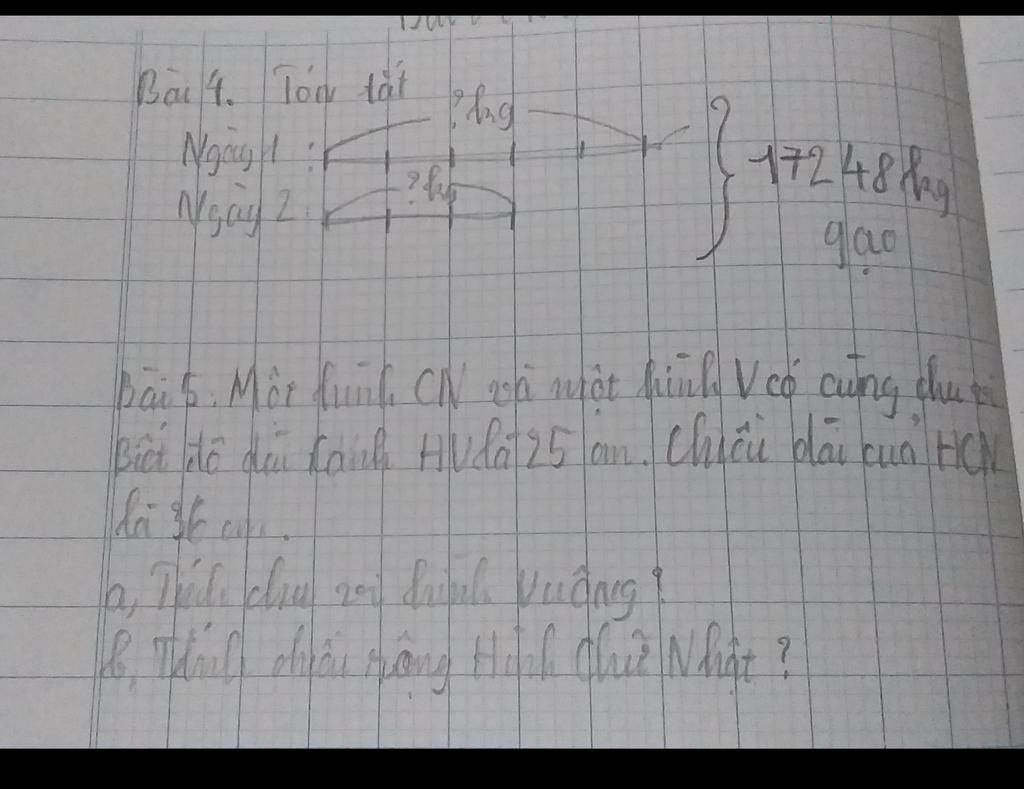 Bài 4. Tóm tắt
? kg
Ngày 1 :
? kg
Ngày 2 :
17248 kg
gạo
Bài 5. Một hình CN và một hình V có cùng chu vi
Biết độ dài cạnh HV là 25 cm. Chiều dài của HCN
là 36 cm.
a, Tính chu vi hình vuông?
b, Tính chiều rộng Hình Chữ Nhật ?